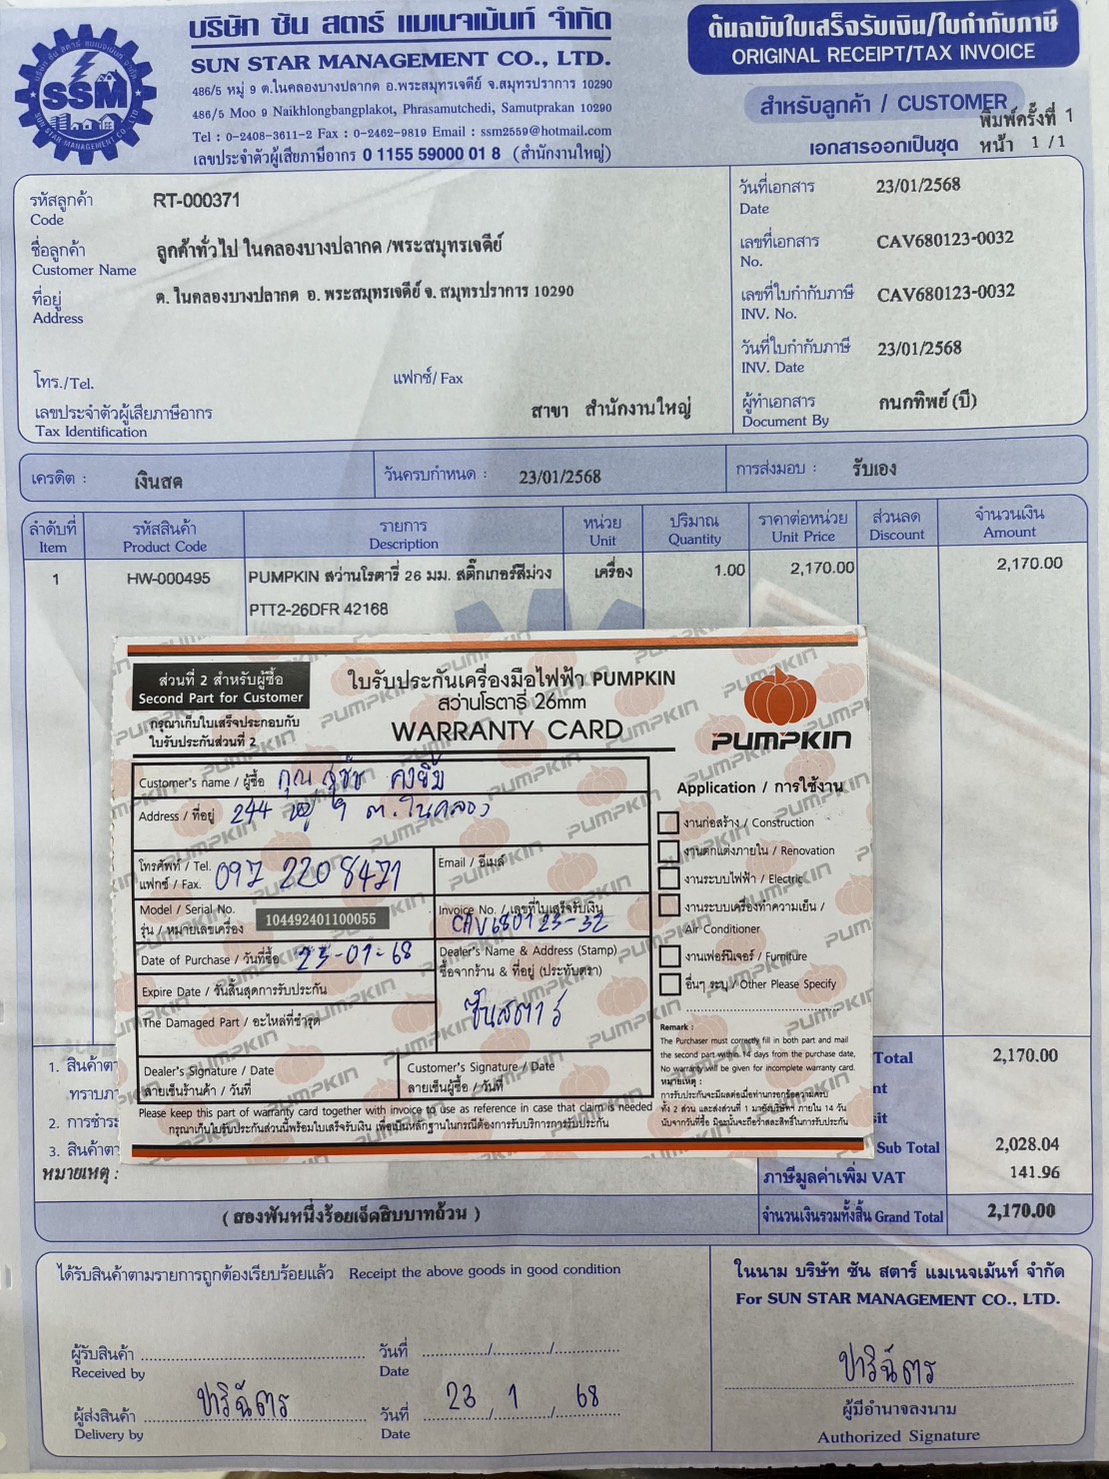 บริษัท ซัน สตาร์ แมเนจเม้นท์ จำกัด
SUN STAR MANAGEMENT CO., LTD.
486/5 หมู่ 9 ต.ในคลองบางปลากด อ.พระสมุทรเจดีย์ จ.สมุทรปราการ 10290
486/5 Moo 9 Naikhlongbangplakot, Phrasamutchedi, Samutprakan 10290
Tel : 0-2408-3611-2 Fax : 0-2462-9819 Email : ssm2559@hotmail.com
เลขประจำตัวผู้เสียภาษีอากร 0 1155 59000 01 8 (สำนักงานใหญ่)
SSM
SUN STAR MANAGEMENT CO., LTD.
ต้นฉบับใบเสร็จรับเงิน/ใบกำกับภาษี
ORIGINAL RECEIPT/TAX INVOICE
สำหรับลูกค้า / CUSTOMER
พิมพ์ครั้งที่ 1
เอกสารออกเป็นชุด หน้า 1 / 1
รหัสลูกค้า RT-000371
Code
ชื่อลูกค้า ลูกค้าทั่วไป ในคลองบางปลากด /พระสมุทรเจดีย์
Customer Name
ที่อยู่ ต. ในคลองบางปลากด อ. พระสมุทรเจดีย์ จ. สมุทรปราการ 10290
Address
โทร./Tel. แฟกซ์/ Fax
เลขประจำตัวผู้เสียภาษีอากร สาขา สำนักงานใหญ่
Tax Identification
วันที่เอกสาร 23/01/2568
Date
เลขที่เอกสาร CAV680123-0032
No.
เลขที่ใบกำกับภาษี CAV680123-0032
INV. No.
วันที่ใบกำกับภาษี 23/01/2568
INV. Date
ผู้ทำเอกสาร กนกทิพย์ (ปี)
Document By
เครดิต : เงินสด วันครบกำหนด : 23/01/2568 การส่งมอบ : รับเอง
ลำดับที่ รหัสสินค้า รายการ หน่วย ปริมาณ ราคาต่อหน่วย ส่วนลด จำนวนเงิน
Item Product Code Description Unit Quantity Unit Price Discount Amount
1 HW-000495 PUMPKIN สว่านโรตารี่ 26 มม. สติ๊กเกอร์สีม่วง เครื่อง 1.00 2,170.00 2,170.00
PTT2-26DFR 42168
ส่วนที่ 2 สำหรับผู้ซื้อ
Second Part for Customer
กรุณาเก็บใบเสร็จประกอบกับ
ใบรับประกันส่วนที่ 2
ใบรับประกันเครื่องมือไฟฟ้า PUMPKIN
สว่านโรตารี่ 26mm
WARRANTY CARD
PUMPKIN
Customer's name / ผู้ซื้อ คุณ สุชัช คงยิ้ม
Address / ที่อยู่ 244 หมู่ 9 ต. ในคลอง
โทรศัพท์ / Tel. 097 2208471
แฟกซ์ / Fax.
Email / อีเมล์
Model / Serial No.
รุ่น / หมายเลขเครื่อง 104492401100055
Invoice No. / เลขที่ใบเสร็จรับเงิน
CAV680123-32
Date of Purchase / วันที่ซื้อ 23-01-68
Dealer's Name & Address (Stamp)
ซื้อจากร้าน & ที่อยู่ (ประทับตรา)
ซันสตาร์
Expire Date / วันสิ้นสุดการรับประกัน
The Damaged Part / อะไหล่ที่ชำรุด
Dealer's Signature / Date
ลายเซ็นร้านค้า / วันที่
Customer's Signature / Date
ลายเซ็นผู้ซื้อ / วันที่
Please keep this part of warranty card together with invoice to use as reference in case that claim is needed
กรุณาเก็บใบรับประกันส่วนนี้พร้อมใบเสร็จรับเงิน เพื่อเป็นหลักฐานในกรณีต้องการรับบริการการรับประกัน
Application / การใช้งาน
งานก่อสร้าง / Construction
งานตกแต่งภายใน / Renovation
งานระบบไฟฟ้า / Electric
งานระบบเครื่องทำความเย็น /
Air Conditioner
งานเฟอร์นิเจอร์ / Furniture
อื่นๆ ระบุ / Other Please Specify
Remark :
The Purchaser must correctly fill in both part and mail
the second part within 14 days from the purchase date,
No warranty will be given for incomplete warranty card.
หมายเหตุ :
การรับประกันจะมีผลต่อเมื่อท่านกรอกข้อความครบ
ทั้ง 2 ส่วน และส่งส่วนที่ 1 มายังบริษัทฯ ภายใน 14 วัน
นับจากวันที่ซื้อ มิฉะนั้นจะถือว่าสละสิทธิ์ในการรับประกัน
1. สินค้าตา
ทราบภา
2. การชำระ
3. สินค้าตา
หมายเหตุ :
Total 2,170.00
nt
sit
Sub Total 2,028.04
ภาษีมูลค่าเพิ่ม VAT 141.96
( สองพันหนึ่งร้อยเจ็ดสิบบาทถ้วน ) จำนวนเงินรวมทั้งสิ้น Grand Total 2,170.00
ได้รับสินค้าตามรายการถูกต้องเรียบร้อยแล้ว Receipt the above goods in good condition
ผู้รับสินค้า วันที่ / /
Received by Date
ผู้ส่งสินค้า ปาริฉัตร วันที่ 23 / 1 / 68
Delivery by Date
ในนาม บริษัท ซัน สตาร์ แมเนจเม้นท์ จำกัด
For SUN STAR MANAGEMENT CO., LTD.
ปาริฉัตร
ผู้มีอำนาจลงนาม
Authorized Signature